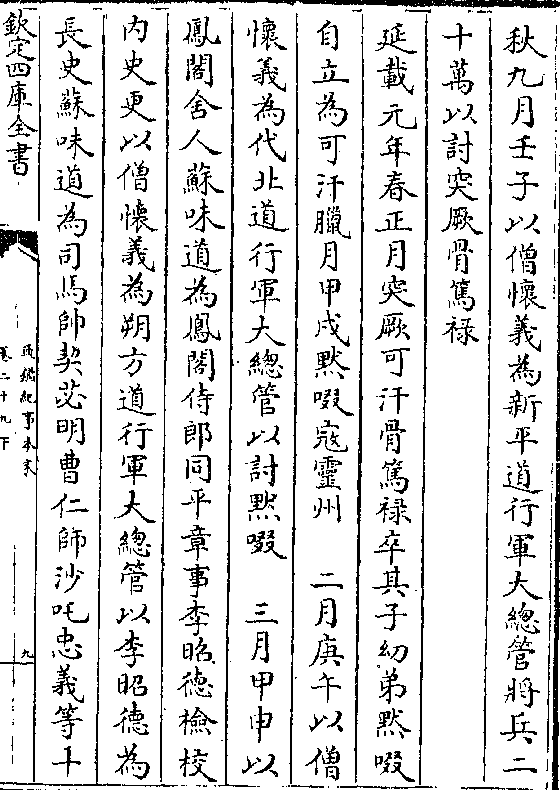 秋九月壬子以僧懷義為新平道行軍大總管將兵二
十萬以討突厥骨篤禄
延載元年春正月突厥可汗骨篤禄卒其子幼弟黙啜
自立為可汗臘月甲戌黙啜寇靈州　二月庚午以僧
懷義為代北道行軍大總管以討黙啜　三月甲申以
鳳閣舍人蘇味道為鳳閣侍郎同平章事李昭德檢校
内史更以僧懷義為朔方道行軍大總管以李昭德為
長史蘇味道為司馬帥契苾明曹仁師沙吒忠義等十
欽定四庫全書
通鑑紀事本末
卷二十九下
九